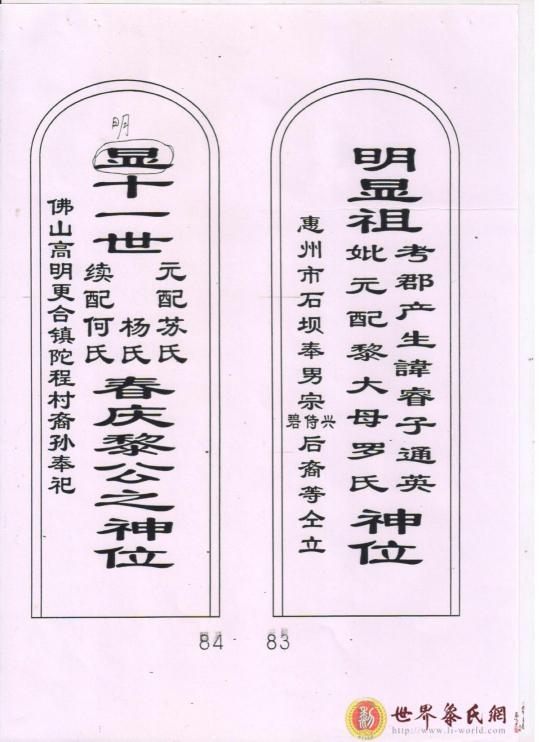 明显祖
考郡产生諱睿子通英
妣元配黎大母罗氏
神位
惠州市石坝奉男宗
碧侍兴
后裔等仝立
83
明
显十一世
元配苏氏
杨氏
续配何氏
春庆黎公之神位
佛山高明更合镇陀程村裔孙奉祀
84
世界黎氏網
http://www.li-world.com